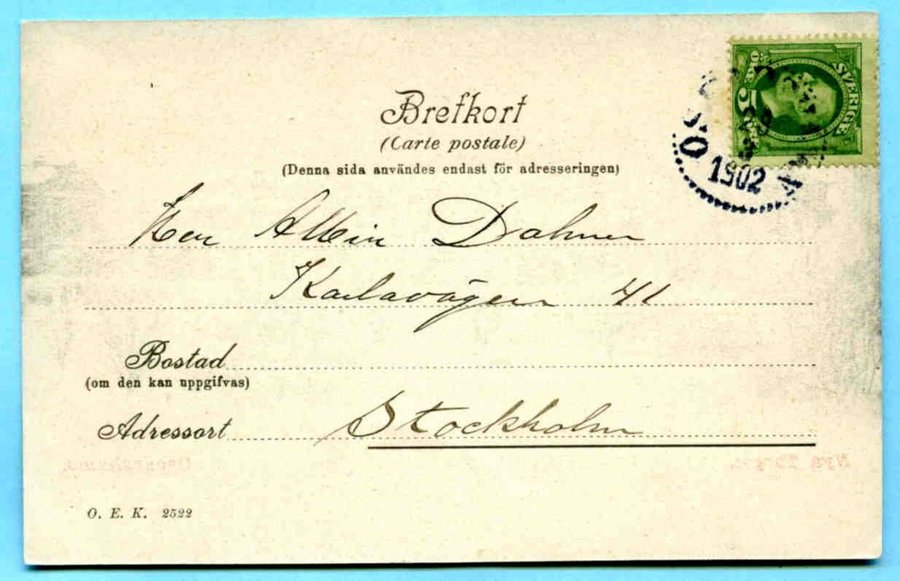 Brefkort
(Carte postale)
(Denna sida användes endast för adresseringen)
SVERIGE
5
1902
Herr Albin Dahmn
Karlavägen 41
Bostad
(om den kan uppgifvas)
Adressort
Stockholm
Nya Torget.
O. E. K. 2522